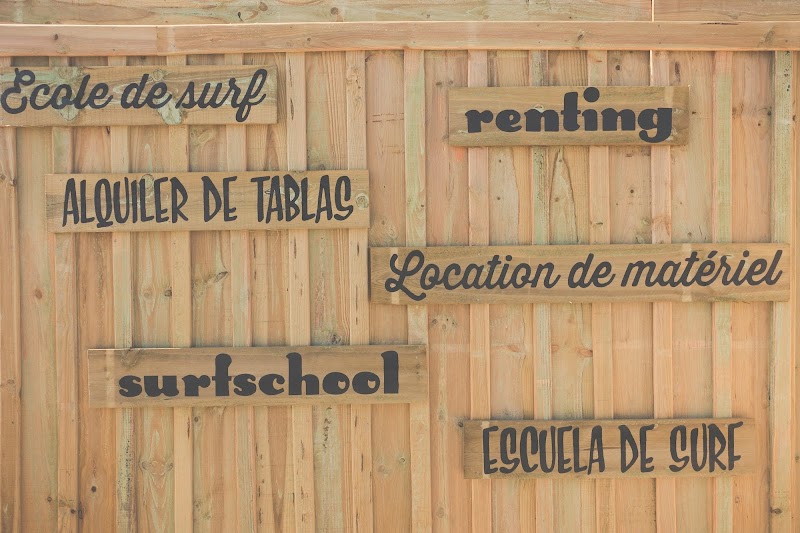 Ecole de surf
renting
ALQUILER DE TABLAS
Location de matériel
surfschool
ESCUELA DE SURF